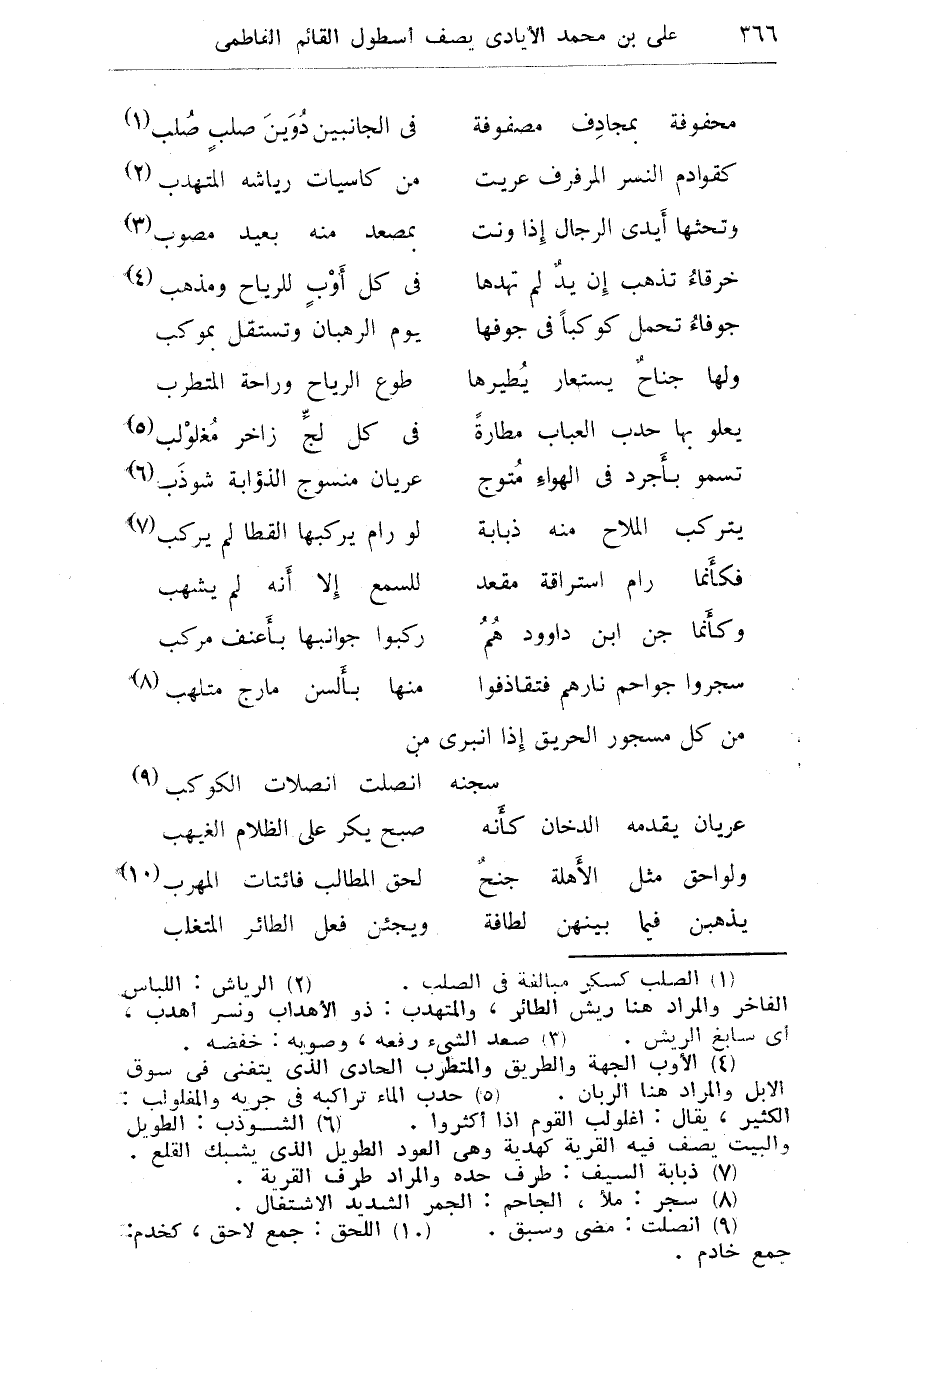 ٣٦٦ على بن محمد الأيادى يصف أسطول القائم الفاطمى
محفوفة بمجادِف مصفوفة فى الجانبين دُوَينَ صلبٍ صُلب (١)
كقوادم النسر المرفرف عريت من كاسيات رياشه المتهدب (٢)
وتحثها أيدى الرجال إذا ونت بمصعد منه بعيد مصوب (٣)
خرقاءُ تذهب إن يدٌ لم تهدها فى كل أَوْبٍ للرياح ومذهب (٤)
جوفاءُ تحمل كوكباً فى جوفها يوم الرهبان وتستقل بموكب
ولها جناحٌ يستعار يُطيرها طوع الرياح وراحة المتطرب
يعلو بها حدب العباب مطارةً فى كل لجٍّ زاخر مُغلوْلب (٥)
تسمو بأَجرد فى الهواءِ مُتوج عريان منسوج الذؤابة شوذَب (٦)
يتركب الملاح منه ذبابة لو رام يركبها القطا لم يركب (٧)
فكأَنما رام استراقة مقعد للسمع إلا أَنه لم يشهب
وكأَنما جن ابن داوود هُمُ ركبوا جوانبها بأَعنف مركب
سجروا جواحم نارهم فتقاذفوا منها بأَلسن مارج متلهب (٨)
من كل مسجور الحريق إذا انبرى من
سجنه انصلت انصلات الكوكب (٩)
عريان يقدمه الدخان كأَنه صبح يكر على الظلام الغيهب
ولواحق مثل الأَهلة جنحٌ لحق المطالب فائتات المهرب (١٠)
يذهبن فيما بينهن لطافة ويجئن فعل الطائر المتغلب
(١) الصلب كسكر مبالغة فى الصلب . (٢) الرياش : اللباس
الفاخر والمراد هنا ريش الطائر ، والمتهدب : ذو الأهداب ونسر أهدب ،
أى سابغ الريش . (٣) صعد الشىء رفعه ، وصوبه : خفضه .
(٤) الأوب الجهة والطريق والمتطرب الحادى الذى يتغنى فى سوق
الابل والمراد هنا الربان . (٥) حدب الماء تراكبه فى جريه والمغلولب :
الكثير ، يقال : اغلولب القوم اذا أكثروا . (٦) الشوذب : الطويل
والبيت يصف فيه القرية كهدبة وهى العود الطويل الذى يشبك القلع .
(٧) ذبابة السيف : طرف حده والمراد طرف القرية .
(٨) سجر : ملأ ، الجاحم : الجمر الشديد الاشتغال .
(٩) انصلت : مضى وسبق . (١٠) اللحق : جمع لاحق ، كخدم:
جمع خادم .